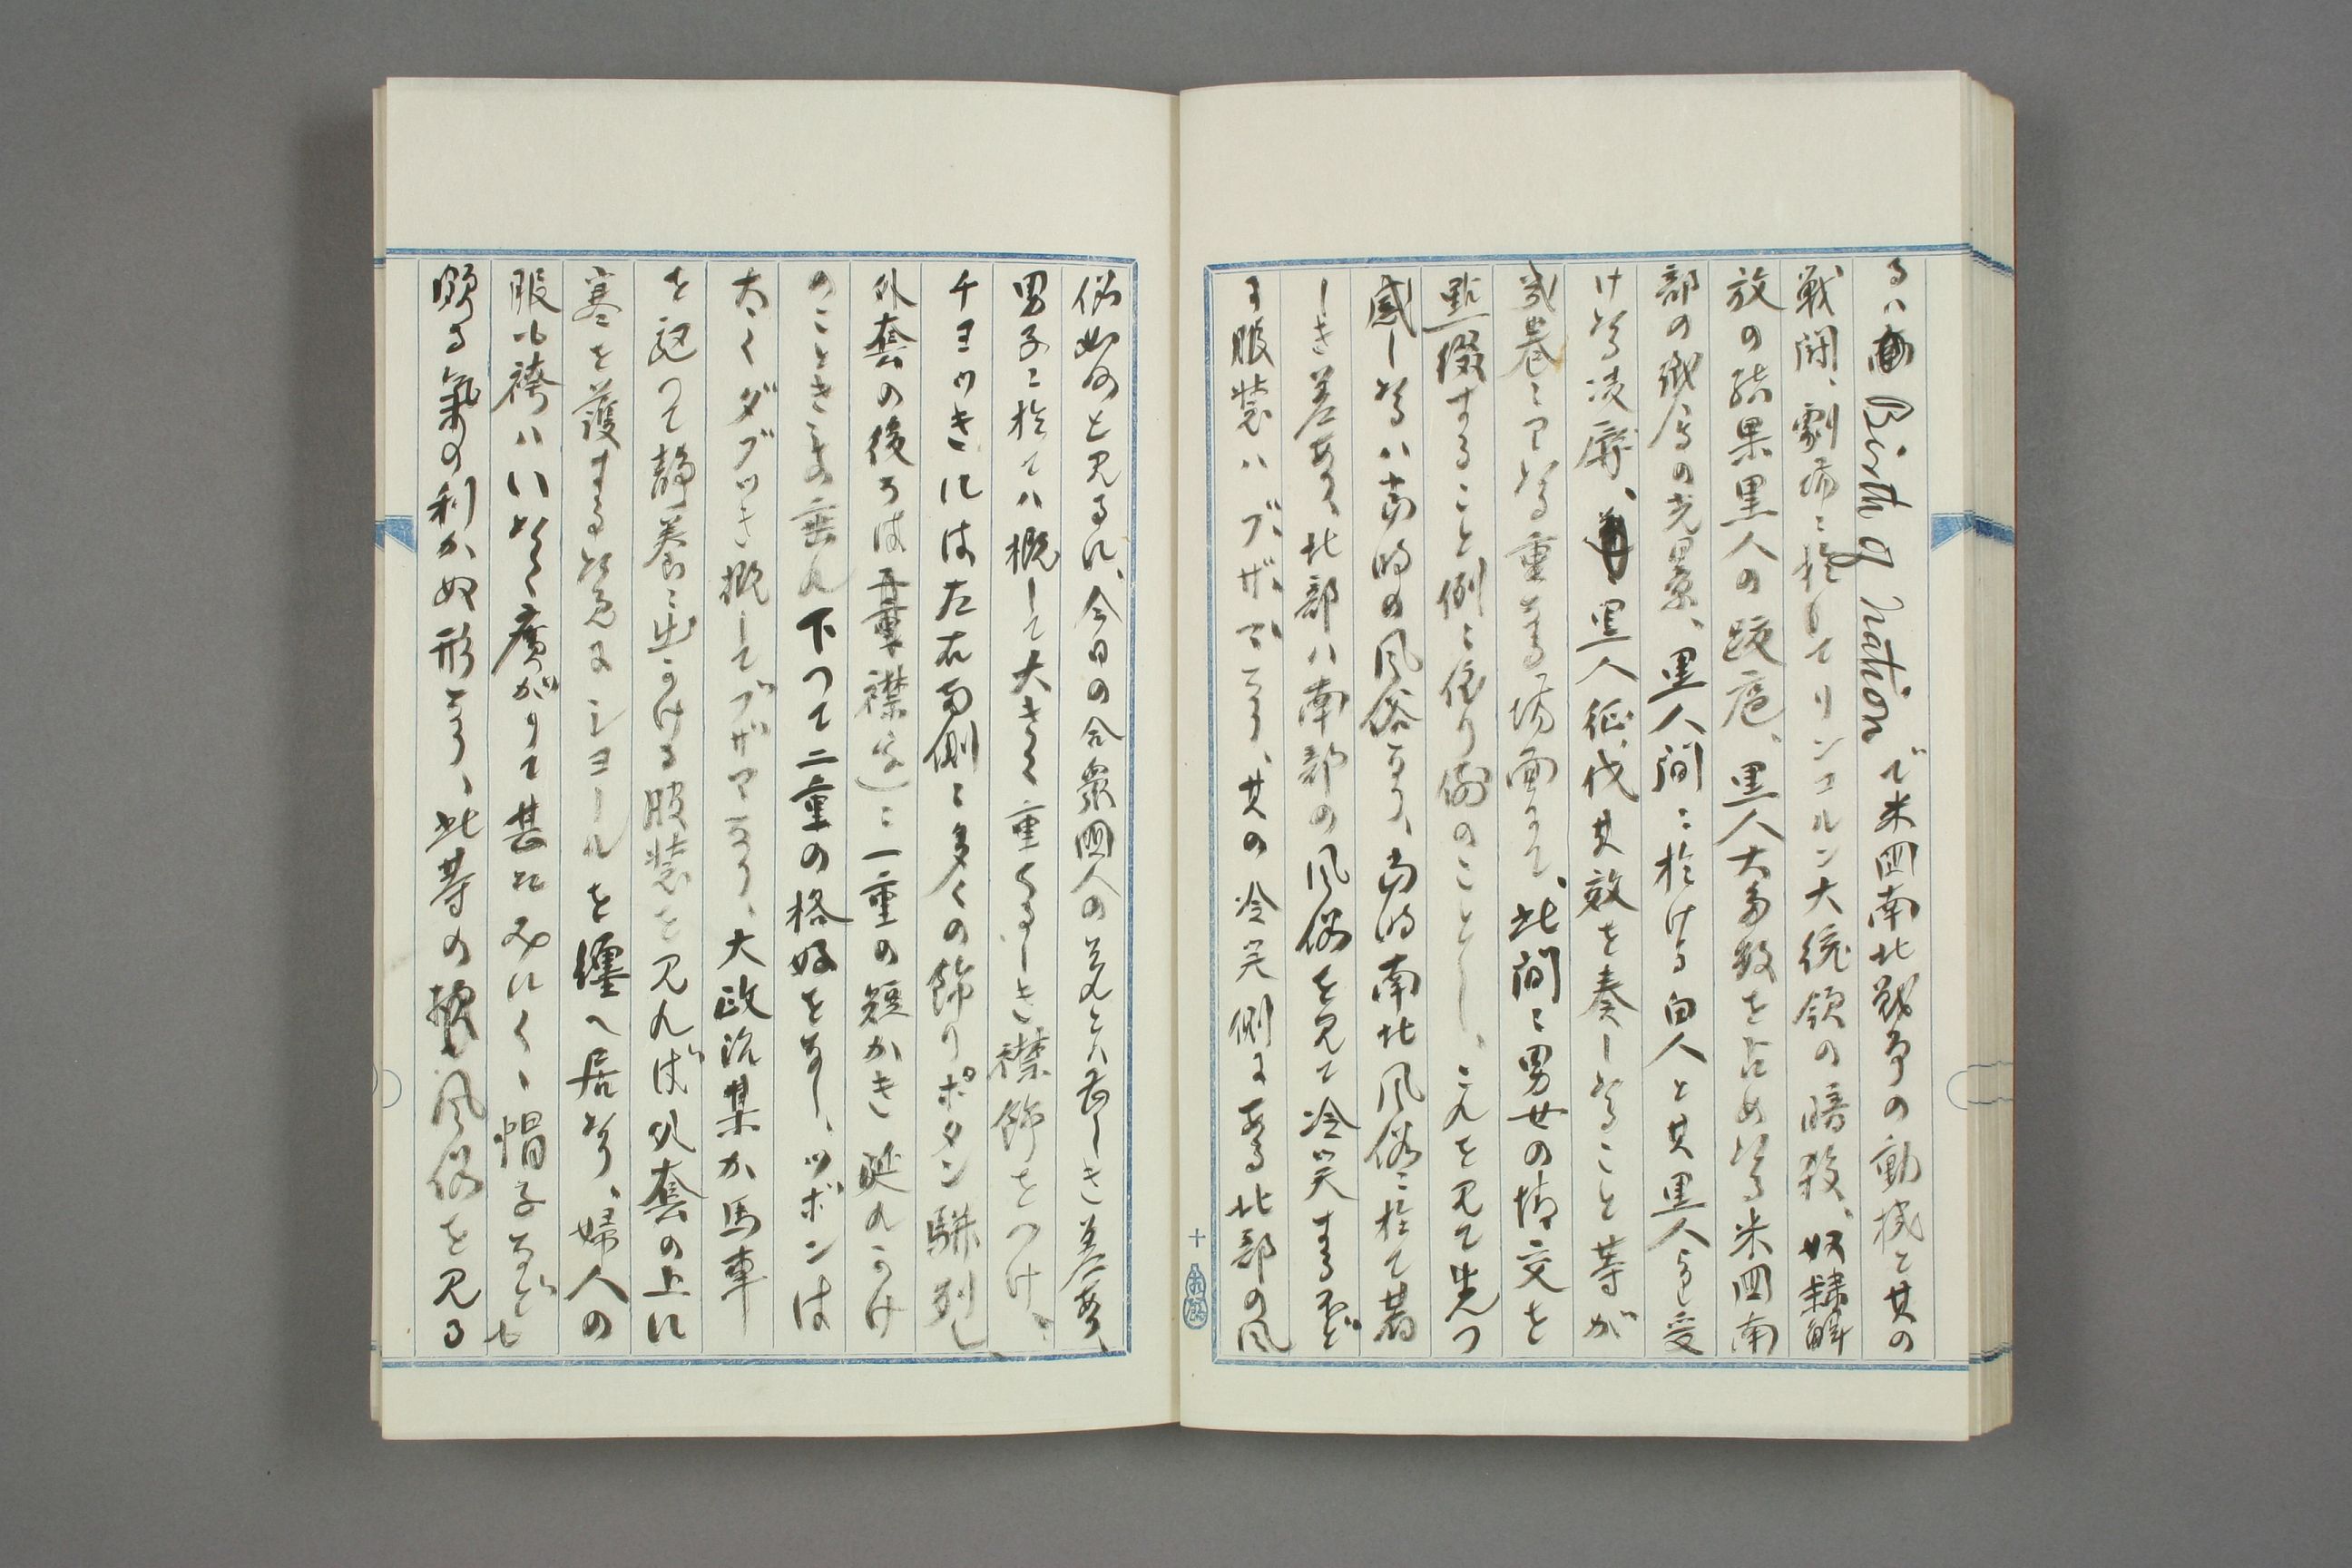 るハ Birth of nation で米国南北戦争の動機と其の
戦闘、劇場に於てリンコルン大統領の暗殺、奴隷解
放の結果黒人の跋扈、黒人大多数を占めたる米国南
部の光景、黒人間に於ける白人と其黒人より受
けたる凌辱、黒人征伐其效を奏したること等が
弐巻ニワたる重なる場面にて、此間に男女の情交を
點綴すること例に依り例のことし、之れを見て先つ
感したるハ当時の風俗なり、当時南北風俗に於て著
しき差あり、北部ハ南部の風俗を見て冷笑する如ど
き服装ハブザマなり、其の冷笑側にある北部の風
俗如何と見るに、今日の合衆国人の夫れとハ著しき差あり、
男子に於てハ概して大きく重くるしき襟飾をつけ、
チヨツキには左右両側に多くの飾りボタン駢列し、
外套の後ろは襟(字)に一重の短かき延れかけ
のことき垂れ下つて二重の格好をなし、ツボンは
太くダブツき概してブザマなり、大政治集か馬車
を駆つて静養に出かける服装を見れば外套の上に
寒を護する為シヨールを纏へ居たり、婦人の
服も袴ハいたく廣がりて甚たみにくく、帽子なども
頗る氣の利かぬ形なり、此等の風俗を見る
十